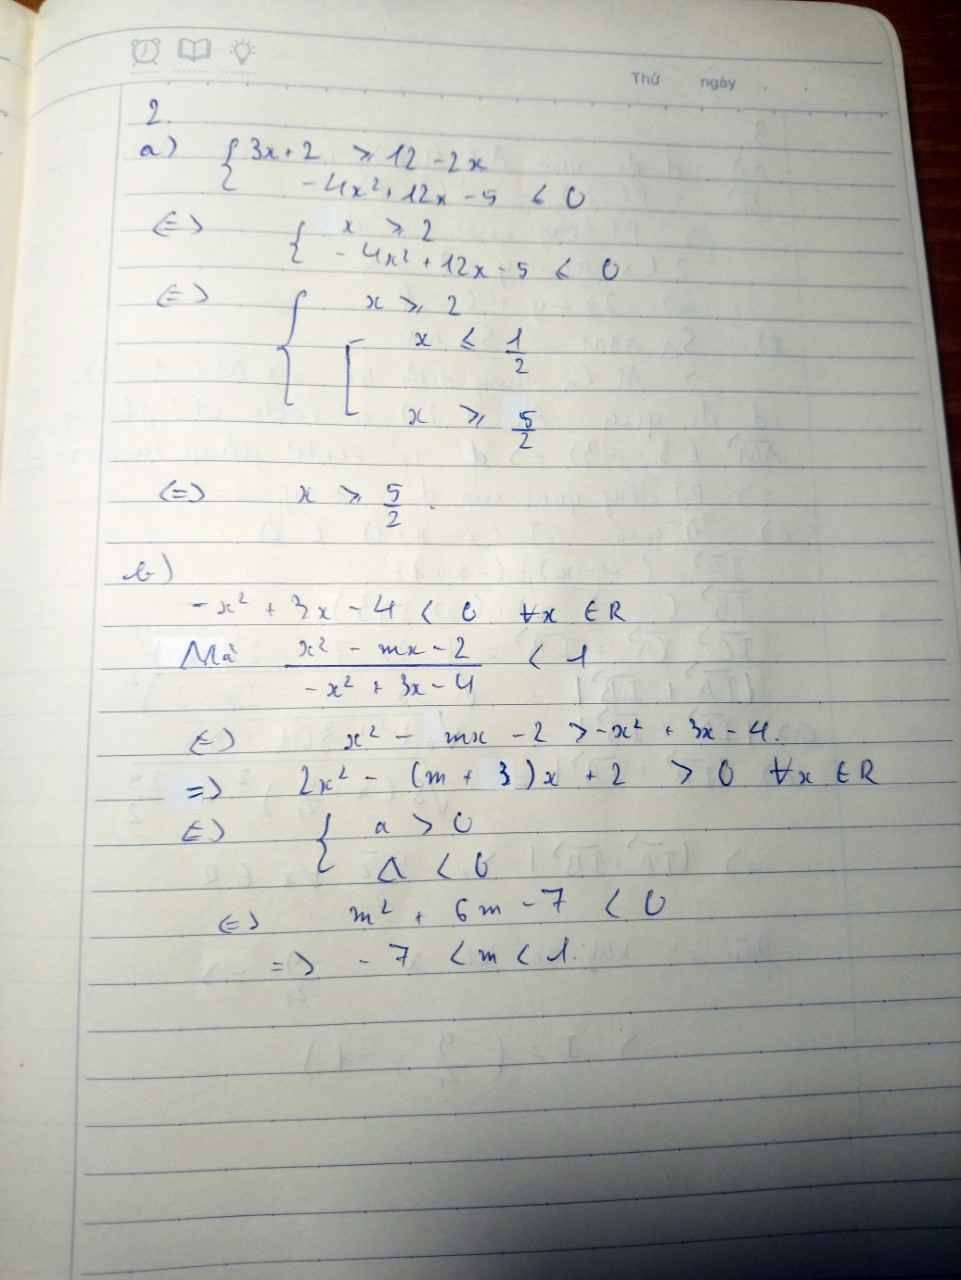 Thứ ngày . .
2.
a) { 3x + 2 ⩾ 12 - 2x
- 4x² + 12x - 5 < 0
(=) { x ⩾ 2
- 4x² + 12x - 5 < 0
(=) { x ⩾ 2
[ x ⩽ 1/2
x ⩾ 5/2
(=) x ⩾ 5/2 .
b)
-x² + 3x - 4 < 0 ∀x ∈ R
Mà (x² - mx - 2)/(-x² + 3x - 4) < 1
(=) x² - mx - 2 > -x² + 3x - 4.
=> 2x² - (m + 3)x + 2 > 0 ∀x ∈ R
(=) { a > 0
Δ < 0
(=) m² + 6m - 7 < 0
=> - 7 < m < 1.